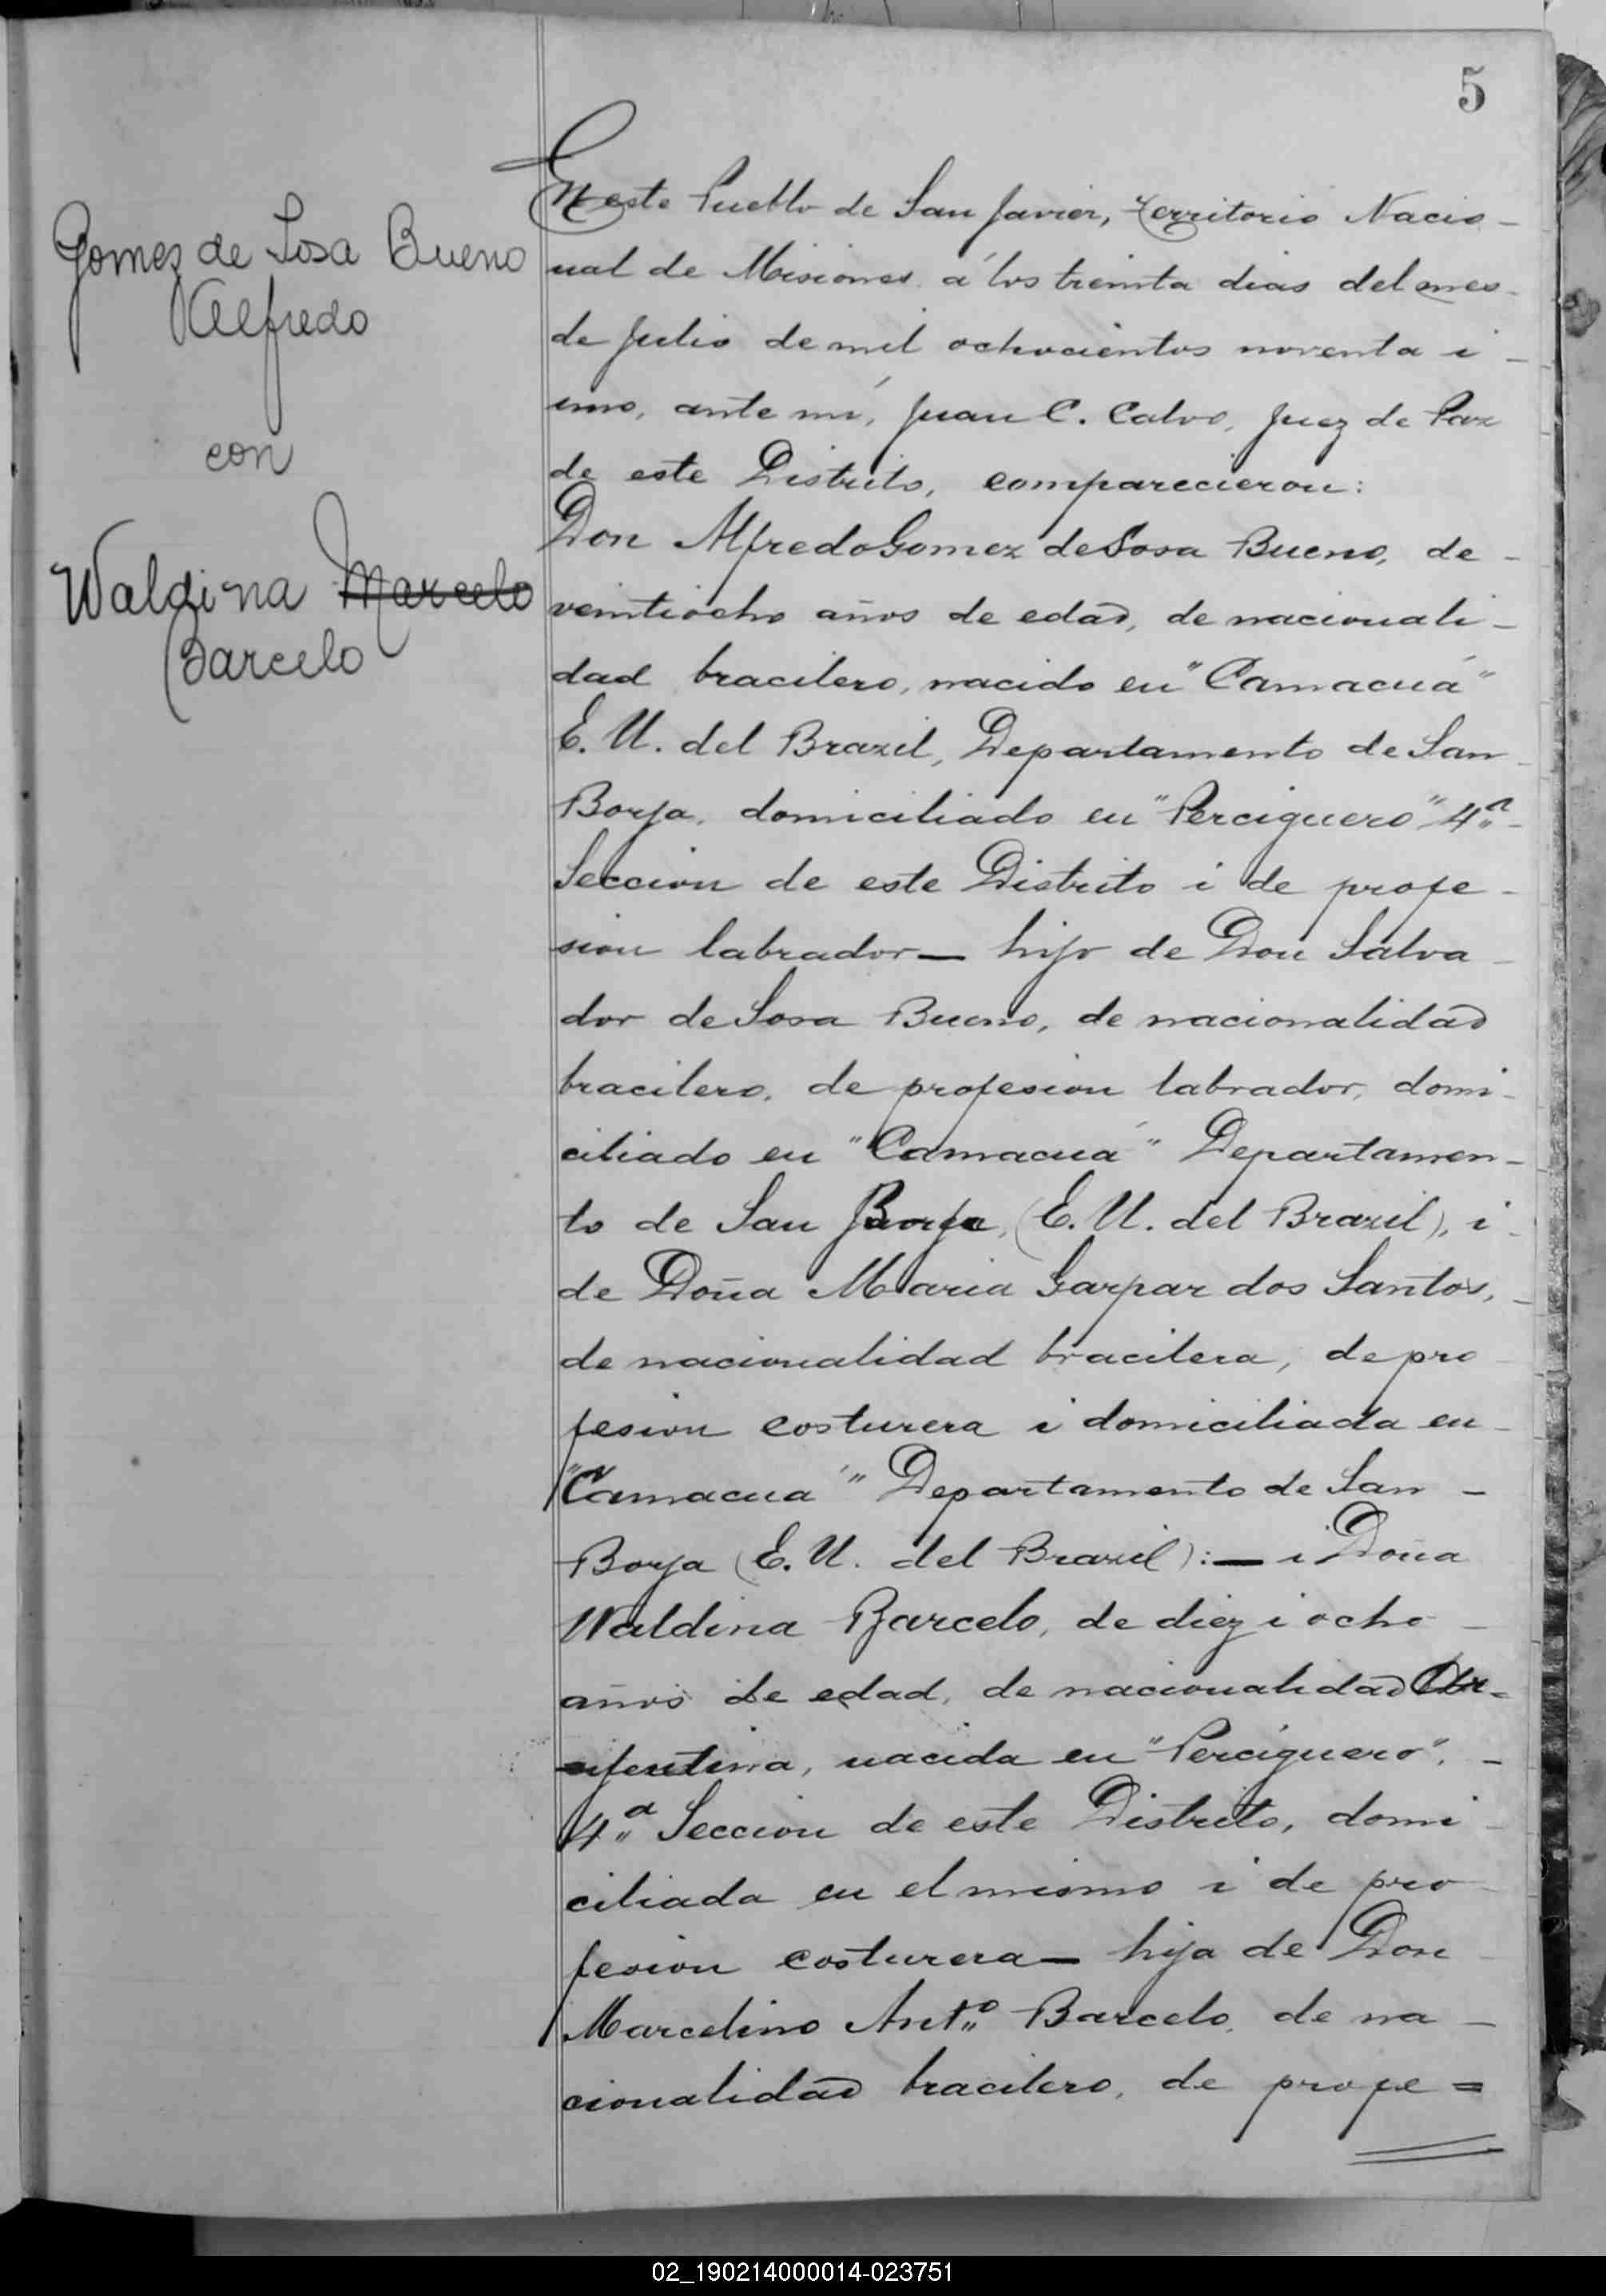 5
Gomez de Sosa Bueno
Alfredo
con
Waldina Marcelo
Barcelo
En este Pueblo de San Javier, Territorio Nacio-
nal de Misiones á los treinta dias del mes
de Julio de mil ochocientos noventa i
uno, ante mí, Juan C. Calvo, Juez de Paz
de este Distrito, comparecieron:
Don Alfredo Gomez de Sosa Bueno, de
veintiocho años de edad, de nacionali-
dad bracilero, nacido en "Camacuá"
E. U. del Brazil, Departamento de San
Borja, domiciliado en "Perciguero" 4ª
Seccion de este Distrito i de profe-
sion labrador— hijo de Don Salva-
dor de Sosa Bueno, de nacionalidad
bracilero, de profesion labrador, domi-
ciliado en "Camacuá" Departamen-
to de San Borja, (E. U. del Brazil), i
de Doña Maria Garpar dos Santos,
de nacionalidad bracilera, de pro
fesion costurera i domiciliada en
"Camacuá" Departamento de San
Borja (E. U. del Brazil):— i Doña
Waldina Barcelo, de diez i ocho
años de edad, de nacionalidad Ar-
jentina, nacida en "Perciguero",
4ª Seccion de este Distrito, domi
ciliada en el mismo i de pro
fesion costurera— hija de Don
Marcelino Antº Barcelo, de na-
cionalidad bracilero, de profe=
02_190214000014-023751